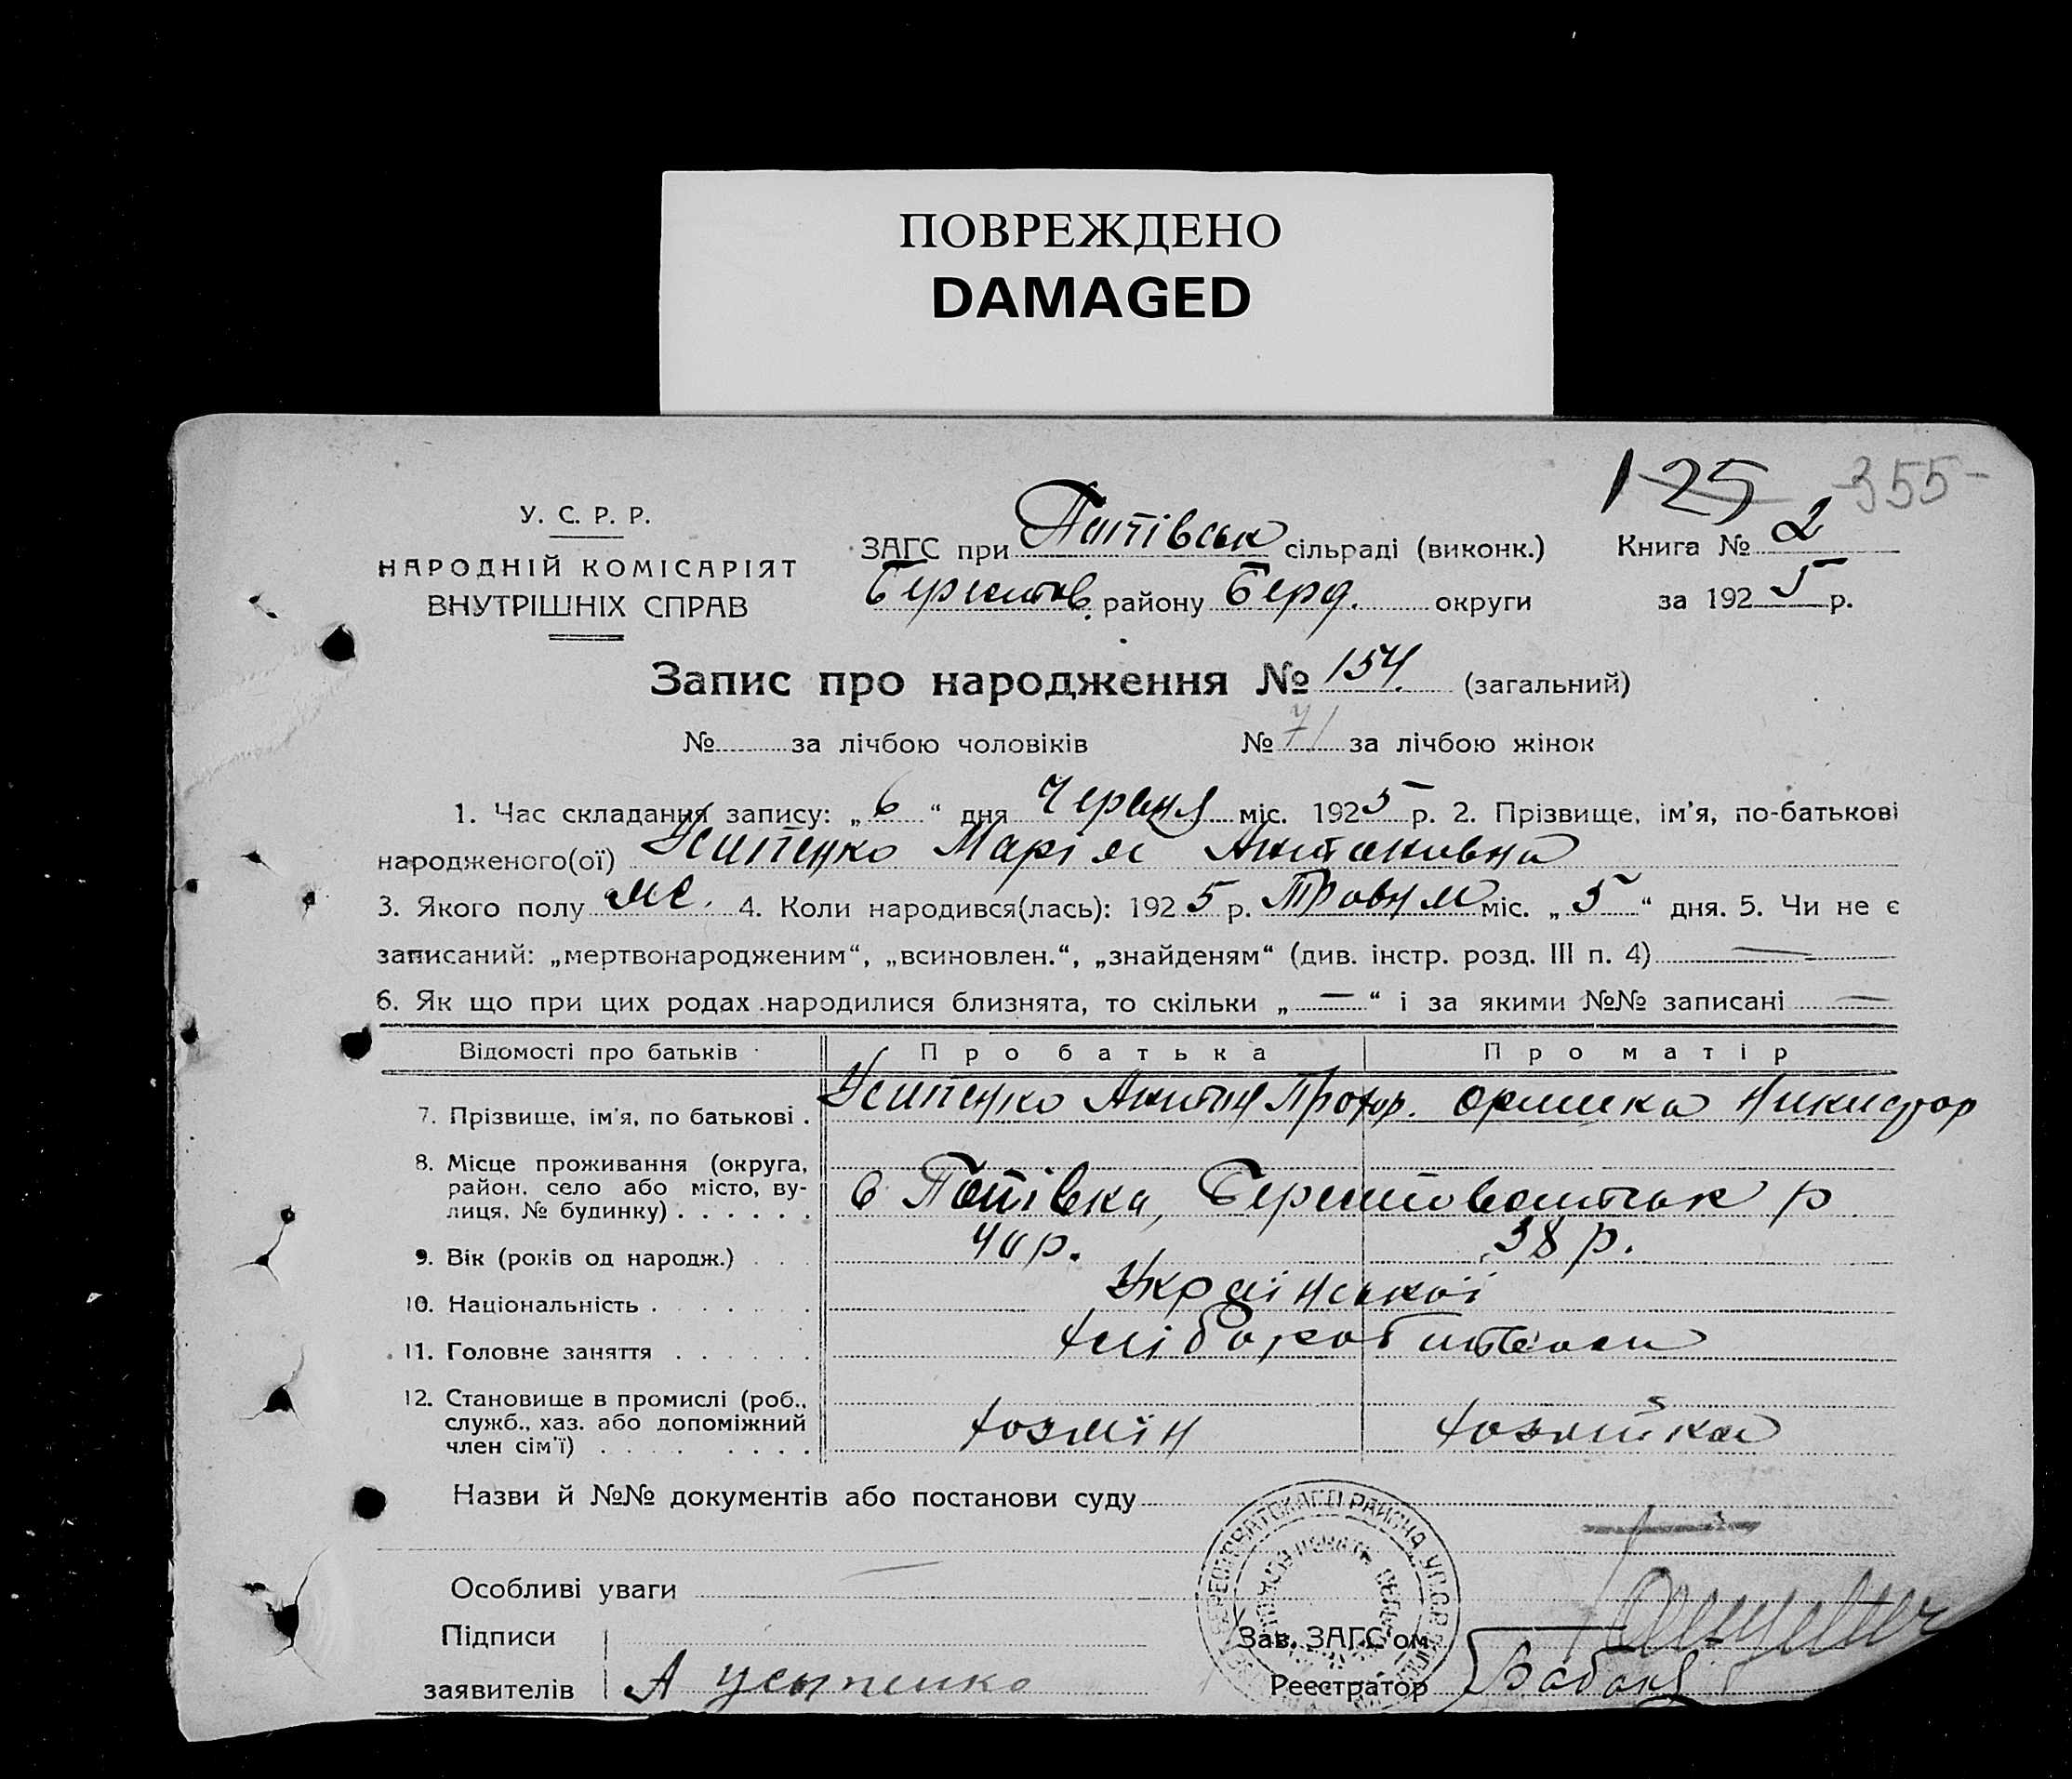 ПОВРЕЖДЕНО
DAMAGED
125 355-
У. С. Р. Р.
НАРОДНІЙ КОМІСАРІЯТ
ВНУТРІШНІХ СПРАВ
ЗАГС при Попівськ сільраді (виконк.) Книга № 2
Берестов. району Берд. округи за 1925 р.
Запис про народження № 154. (загальний)
№ за лічбою чоловіків № 71 за лічбою жінок
1. Час складання запису: „6“ дня Червня міс. 1925 р. 2. Прізвище, ім'я, по-батькові
народженого(ої) Усипенко Марія Антоновна
3. Якого полу ж. 4. Коли народився(лась): 1925 р. Травня міс. „5“ дня. 5. Чи не є
записаний: „мертвонародженим“, „всиновлен.“, „знайденям“ (див. інстр. розд. III п. 4) —
6. Як що при цих родах народилися близнята, то скільки „—“ і за якими №№ записані —
Відомості про батьків Про батька Про матір
7. Прізвище, ім'я, по батькові . Усипенко Антін Прохор. Оришка Никифор
8. Місце проживання (округа,
район, село або місто, ву-
лиця, № будинку) . . . . . . в Попівка, р
9. Вік (років од народж.) . . . 40 р. 38 р.
10. Національність . . . . . . Української
11. Головне заняття . . . . . .
12. Становище в промислі (роб.,
служб., хаз. або допоміжний
член сім'ї) . . . . . . . . . хозяїн хозяйка
Назви й №№ документів або постанови суду
Особливі уваги
Підписи
Зав. ЗАГС'ом
заявителів А Усипенко Реєстратор